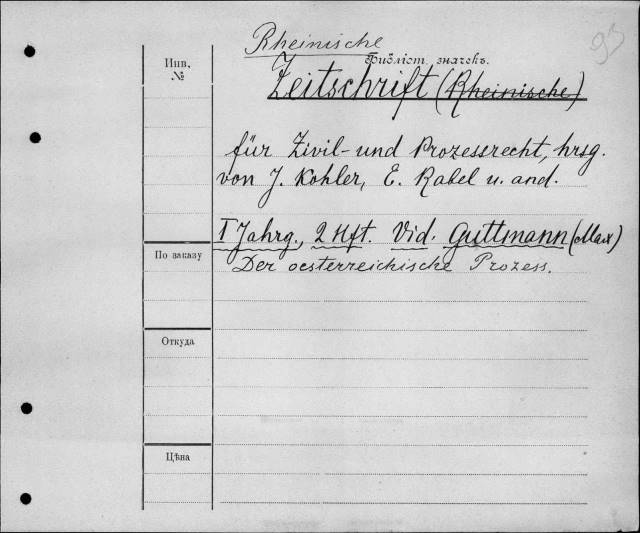 93
Rheinische
Библіот. значекъ.
Zeitschrift (Rheinische)
Инв.
№
für Zivil- und Prozessrecht, hrsg.
von J. Kohler, E. Rabel u. and.
I Jahrg., 2 Hft. Vid. Guttmann (Max)
По заказу
Der oesterreichische Prozess.
Откуда
Цѣна